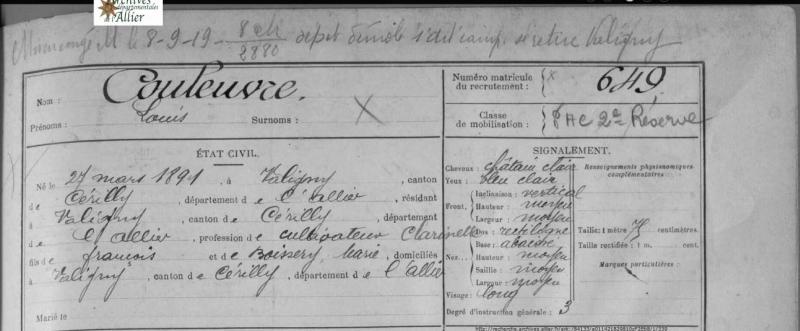 Archives
départementales
Allier
le 8-9-19 8 ch / 2880 dépôt démob se retire Valigny
Nom : Couleuvre.
Prénoms : Louis Surnoms : X
Numéro matricule du recrutement : X 649
Classe de mobilisation : PAC 2e Réserve
ÉTAT CIVIL.
Né le 27 mars 1891, à Valigny, canton
d e Cérilly, département d e l'allier, résidant
à Valigny, canton de Cérilly, département
d e l'allier, profession de cultivateur Clarinette
fils de françois et d e Boissery, Marie, domiciliés
à Valigny, canton de Cérilly, département d e l'allier
Marié le
SIGNALEMENT.
Cheveux : châtain clair
Yeux : bleu clair
Front, Inclinaison : vertical
Hauteur : moyen
Largeur : moyen
Nez... Dos : rectiligne
Base : abaissé
Hauteur : moyen
Saillie : moyen
Largeur : moyen
Visage : long
Degré d'instruction générale : 3
Renseignements physionomiques
complémentaires :
Taille : 1 mètre centimètres.
Taille rectifiée : 1 m. cent.
Marques particulières :